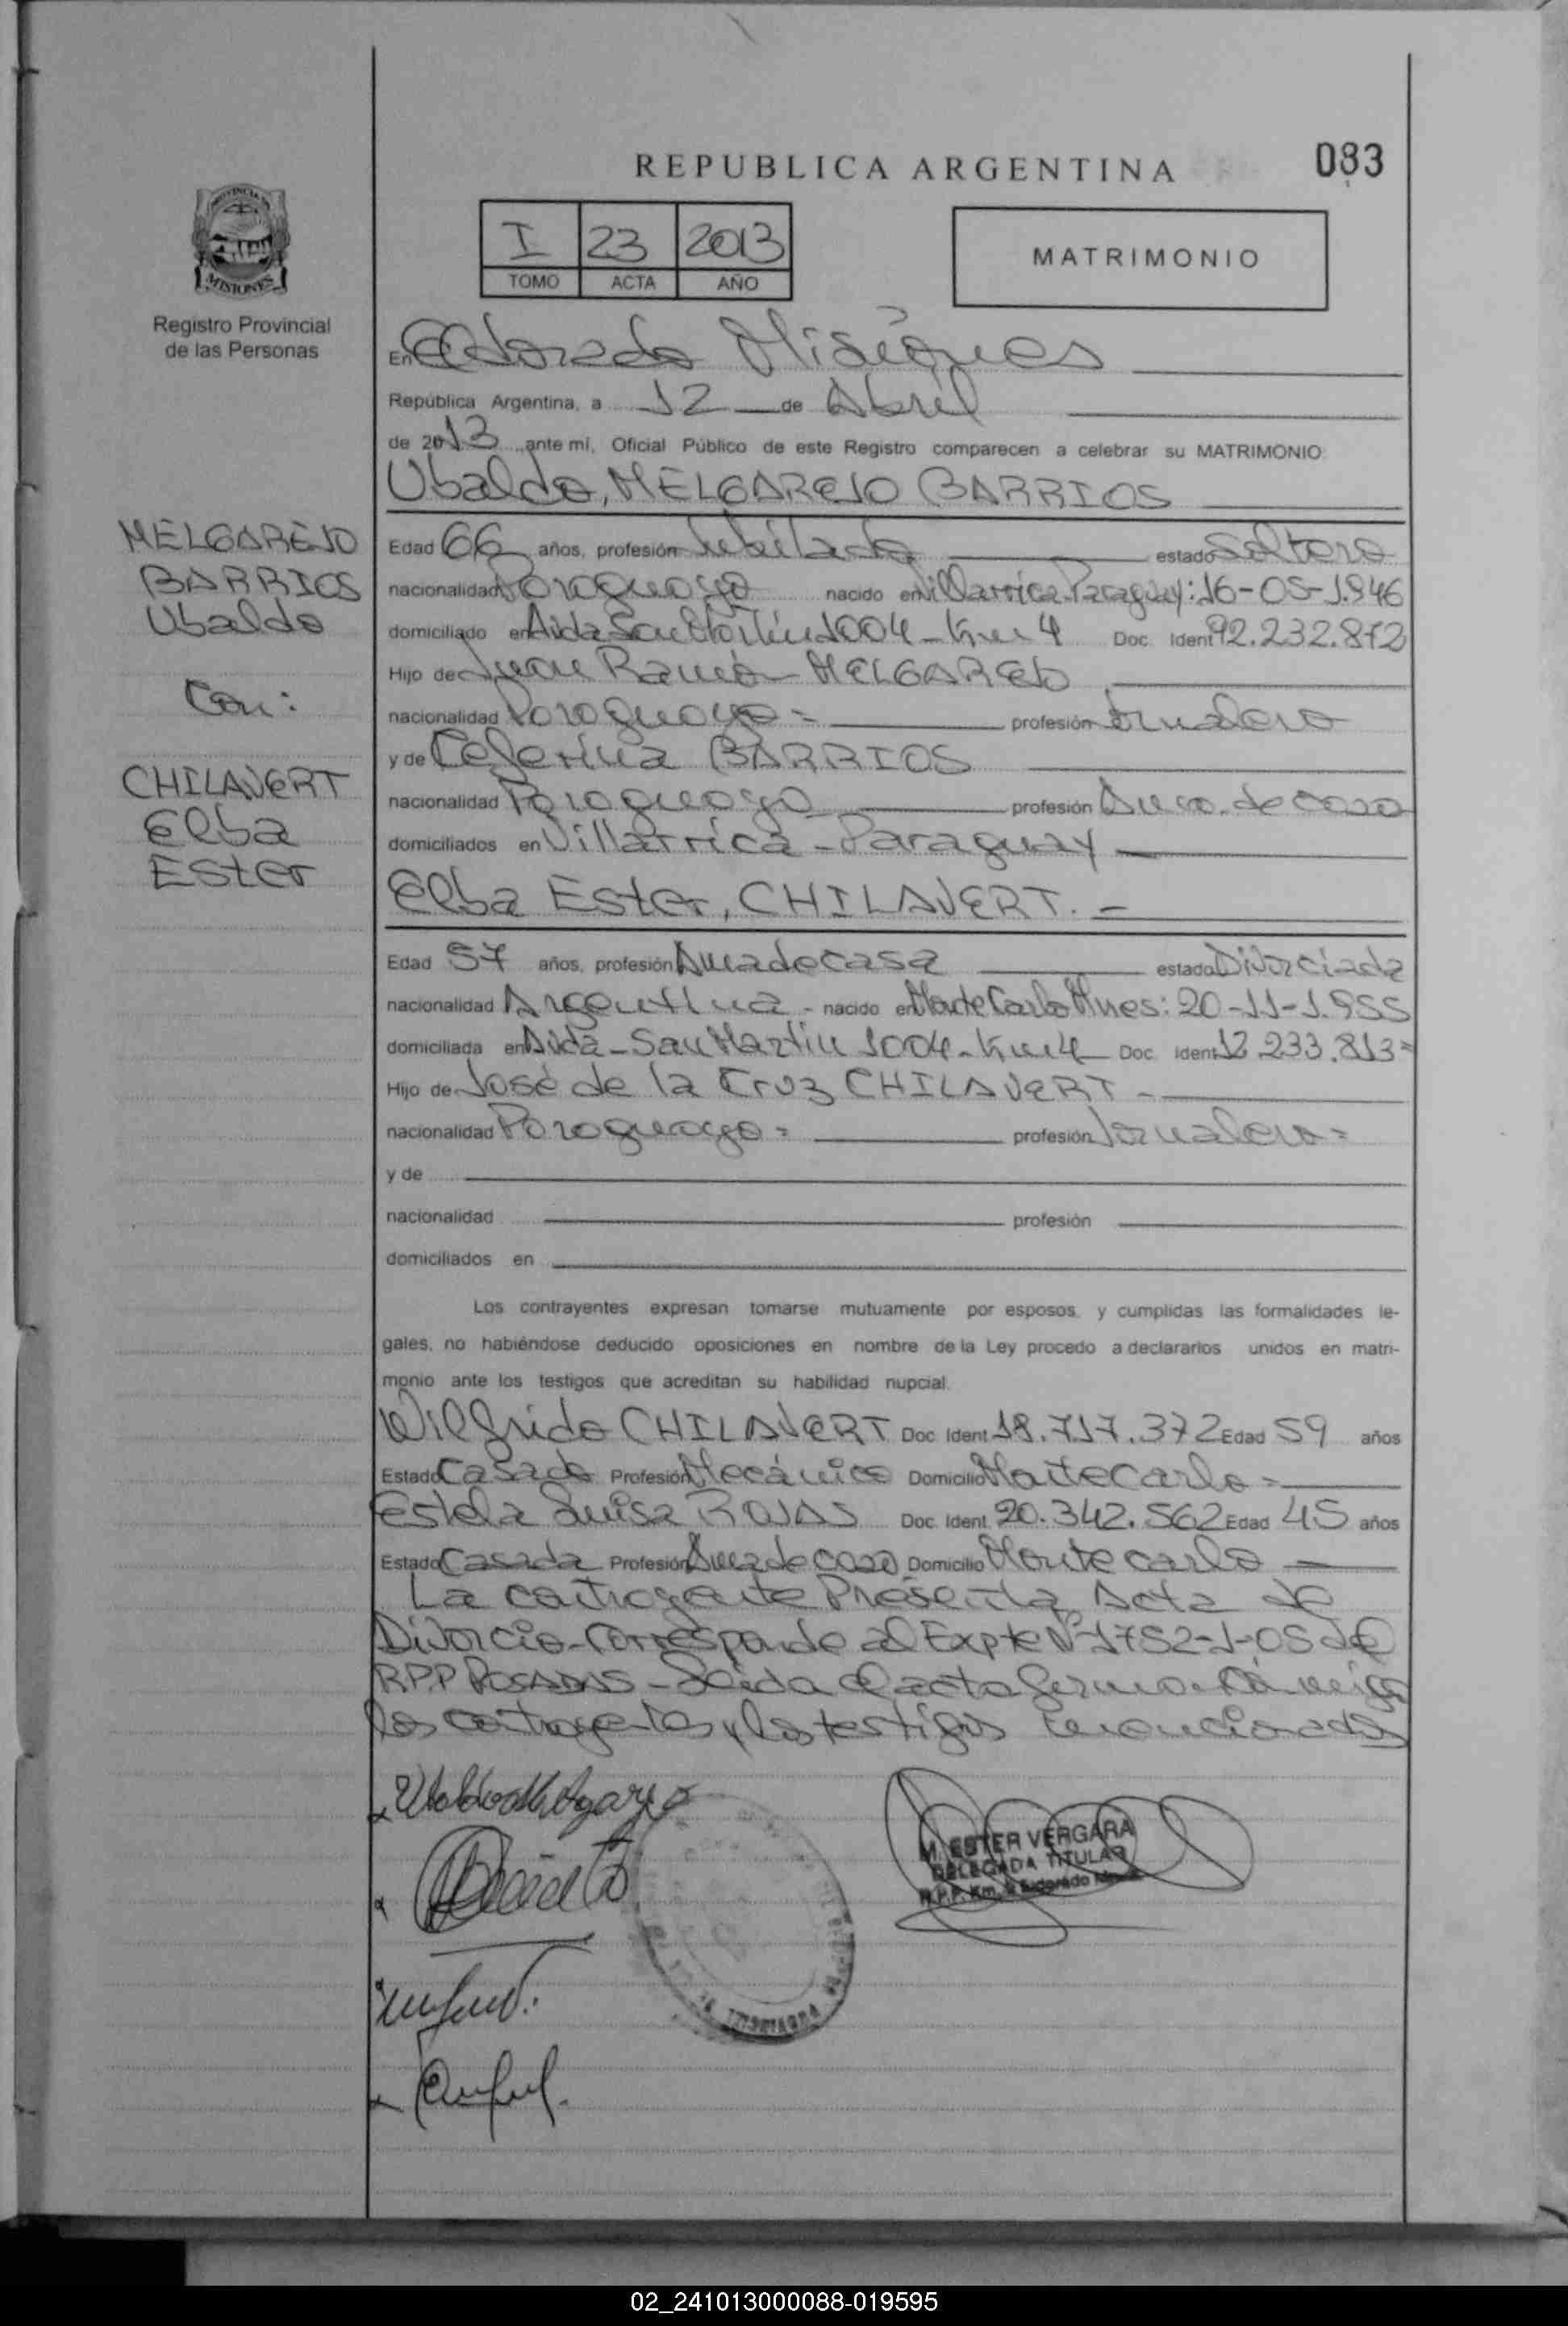 REPUBLICA ARGENTINA
083
PROVINCIA DE
MISIONES
Registro Provincial
de las Personas
I 23 2013
TOMO ACTA AÑO
MATRIMONIO
En Eldorado Misiones
República Argentina, a 12 de Abril
de 2013 ante mí, Oficial Público de este Registro comparecen a celebrar su MATRIMONIO:
Ubaldo, MELGAREJO BARRIOS
MELGAREJO
BARRIOS
Ubaldo
Con:
CHILAVERT
Elba
Ester
Edad 66 años, profesión Jubilado estado Soltero
nacionalidad Paraguayo nacido en Villarrica Paraguay: 16-05-1.946
domiciliado en Avda San Martín 1004 - Km 4 Doc. Ident 92.232.872
Hijo de Juan Ramón MELGAREJO
nacionalidad Paraguayo = profesión Jornalero
y de Ceferina BARRIOS
nacionalidad Paraguaya profesión Ama de casa
domiciliados en Villarrica - Paraguay
Elba Ester, CHILAVERT. -
Edad 57 años, profesión Ama de casa estado Divorciada
nacionalidad Argentina - nacido en Monte Carlo Mnes: 20-11-1.955
domiciliada en Avda - San Martín 1004 - Km 4 Doc. Ident 12.233.813=
Hijo de José de la Cruz CHILAVERT -
nacionalidad Paraguayo = profesión Jornalero =
y de
nacionalidad profesión
domiciliados en
Los contrayentes expresan tomarse mutuamente por esposos, y cumplidas las formalidades le-
gales, no habiéndose deducido oposiciones en nombre de la Ley procedo a declararlos unidos en matri-
monio ante los testigos que acreditan su habilidad nupcial.
Wilfrido CHILAVERT Doc. Ident 18.717.372 Edad 59 años
Estado Casado Profesión Mecánico Domicilio Monte Carlo =
Estela Luisa ROJAS Doc. Ident. 20.342.562 Edad 45 años
Estado Casada Profesión Ama de casa Domicilio Monte carlo
La contrayente Presenta Acta de
Divorcio - Corresponde al Expte Nº 1752-1-05 de
RPP POSADAS - Leida el acta firman
los contrayentes y los testigos mencionados
Ubaldo Melgarejo
M. ESTER VERGARA
DELEGADA TITULAR
R.P.P. Km. Eldorado
02_241013000088-019595